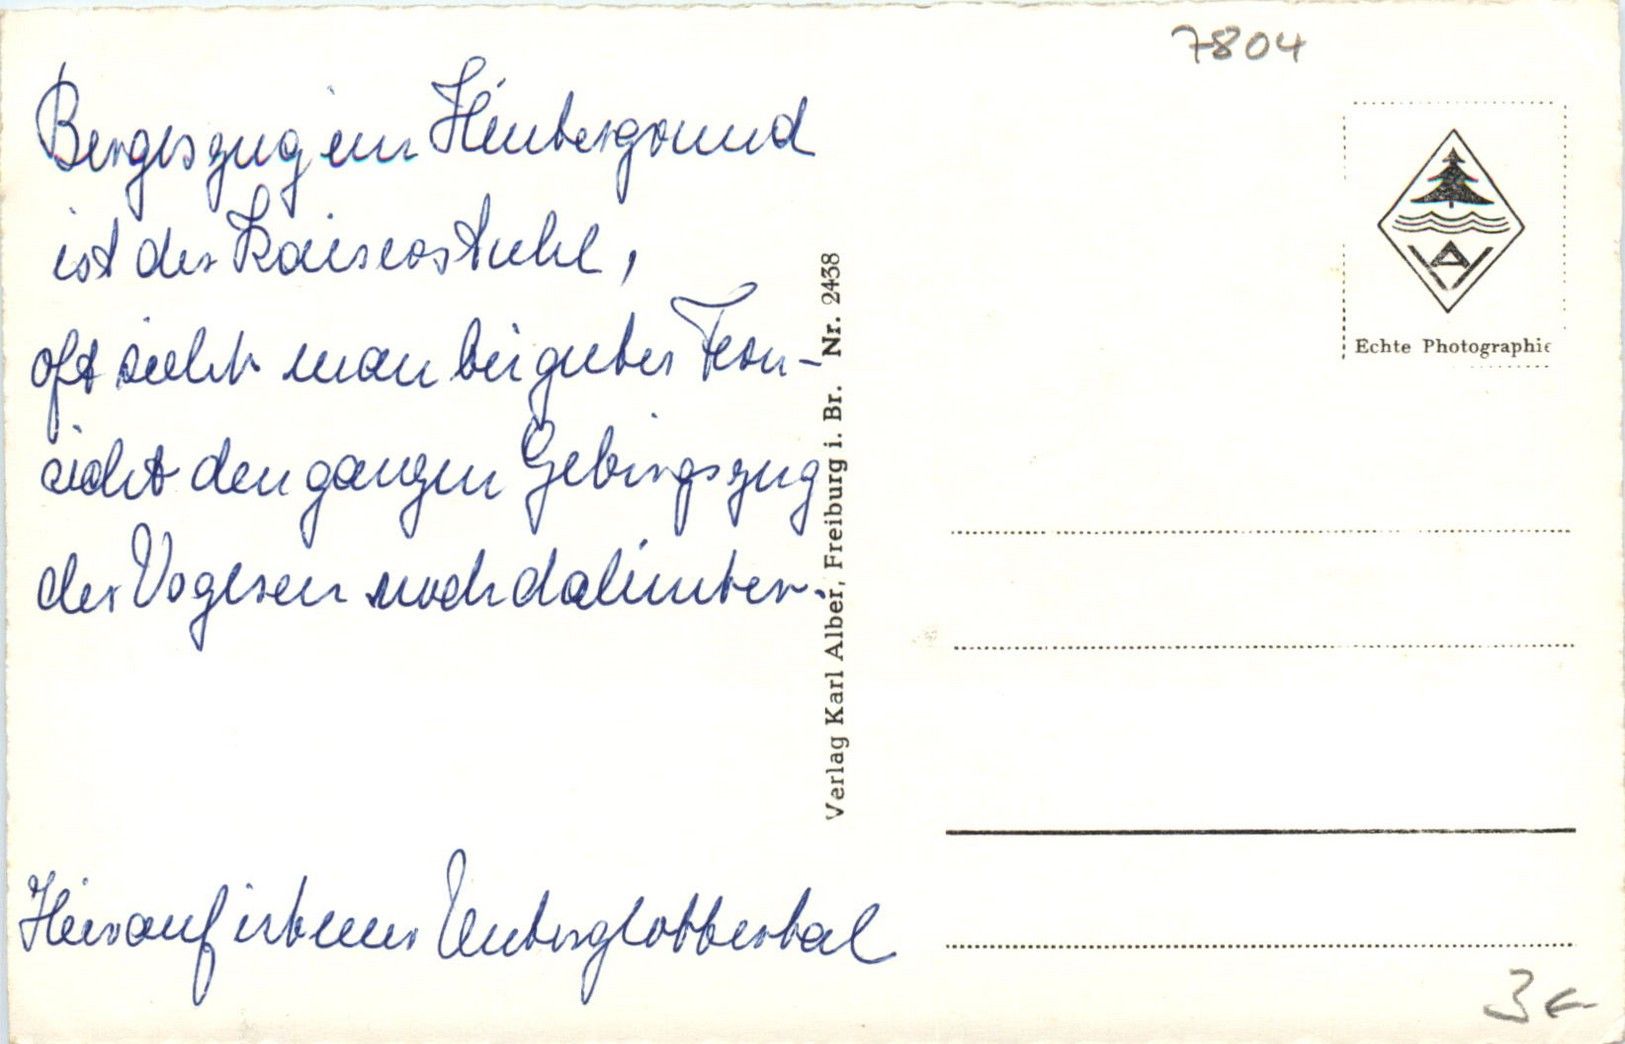 Bergeszug im Hintergrund
ist der Kaiserstuhl,
oft sieht man bei guter Fern-
sicht den ganzen Gebirgszug
der Vogesen noch dahinter.
Hierauf ist nur Unterglottertal
Verlag Karl Alber, Freiburg i. Br. Nr. 2438
7804
Echte Photographie
3€